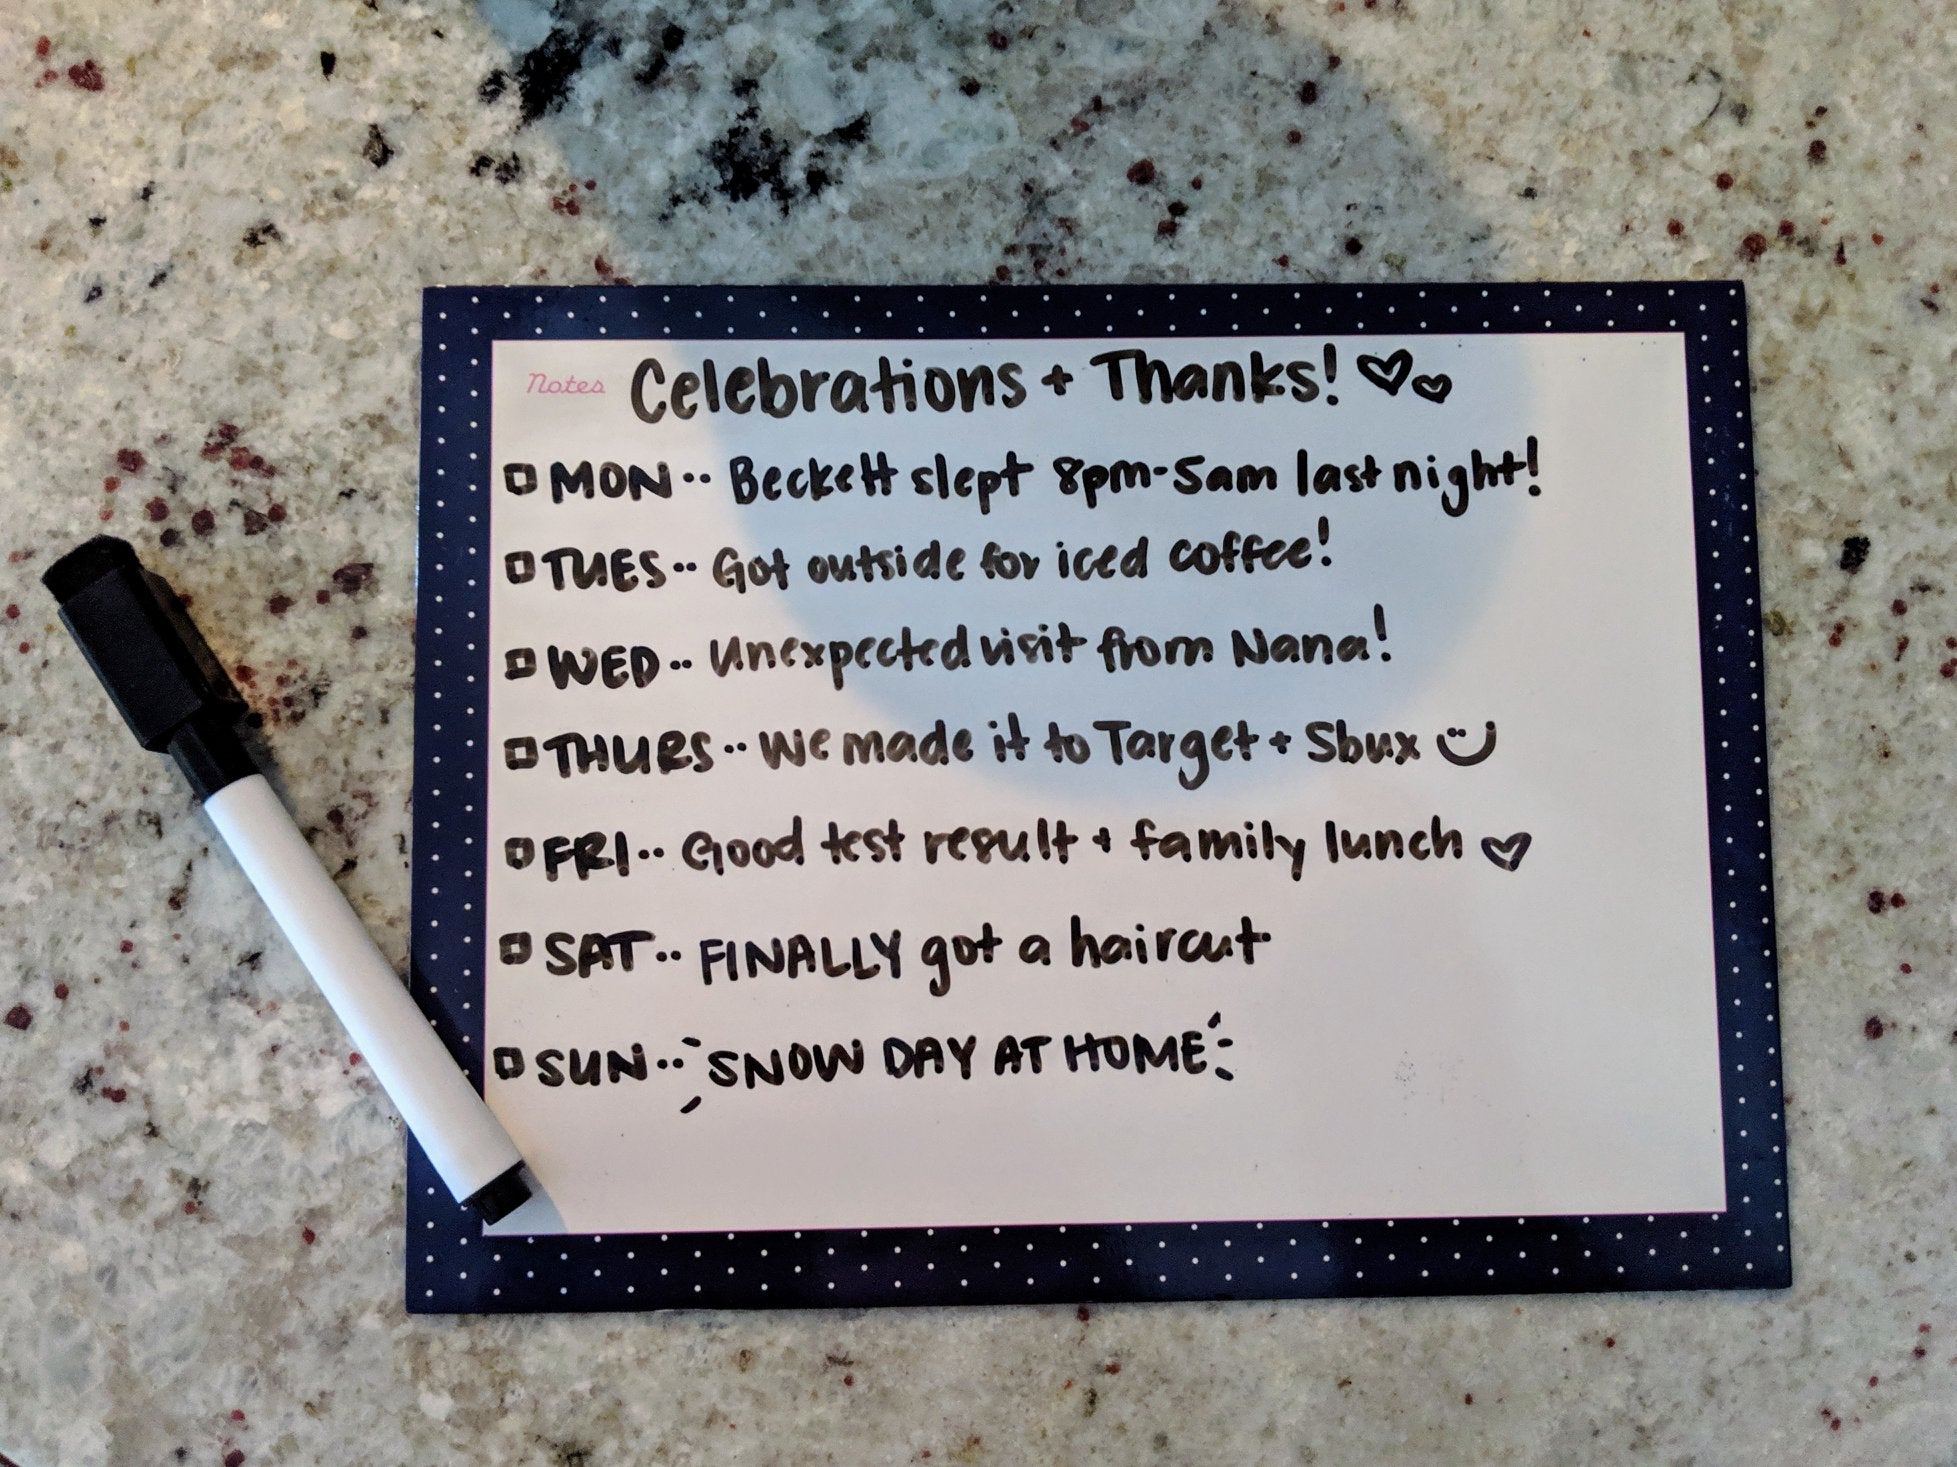 Notes Celebrations + Thanks! ♡♡
□ MON·· Beckett slept 8pm-5am last night!
□ TUES·· Got outside for iced coffee!
□ WED·· Unexpected visit from Nana!
□ THURS·· We made it to Target + Sbux ☺
□ FRI·· Good test result + family lunch ♡
□ SAT·· FINALLY got a haircut
□ SUN·· SNOW DAY AT HOME